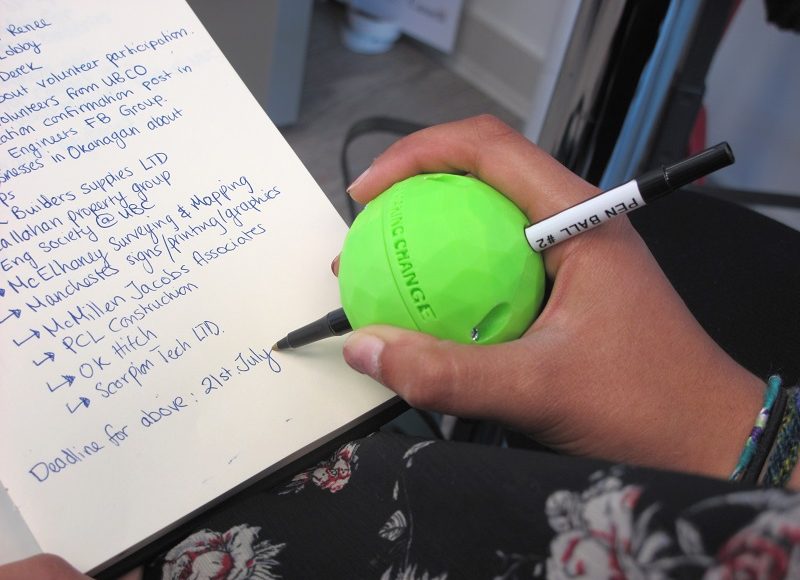 Renee
Lobby
Derek
about volunteer participation.
volunteers from UBCO
confirmation post in
Engineers FB Group.
in Okanagan about
Builders supplies LTD
Callahan property group
Eng society @ UBC
McElhaney Surveying & Mapping
Manchester signs/printing/graphics
McMillen Jacobs Associates
PCL Construction
OK Hitch
Scorpion Tech LTD.
Deadline for above : 21st July
CHANGE
PEN BALL #2